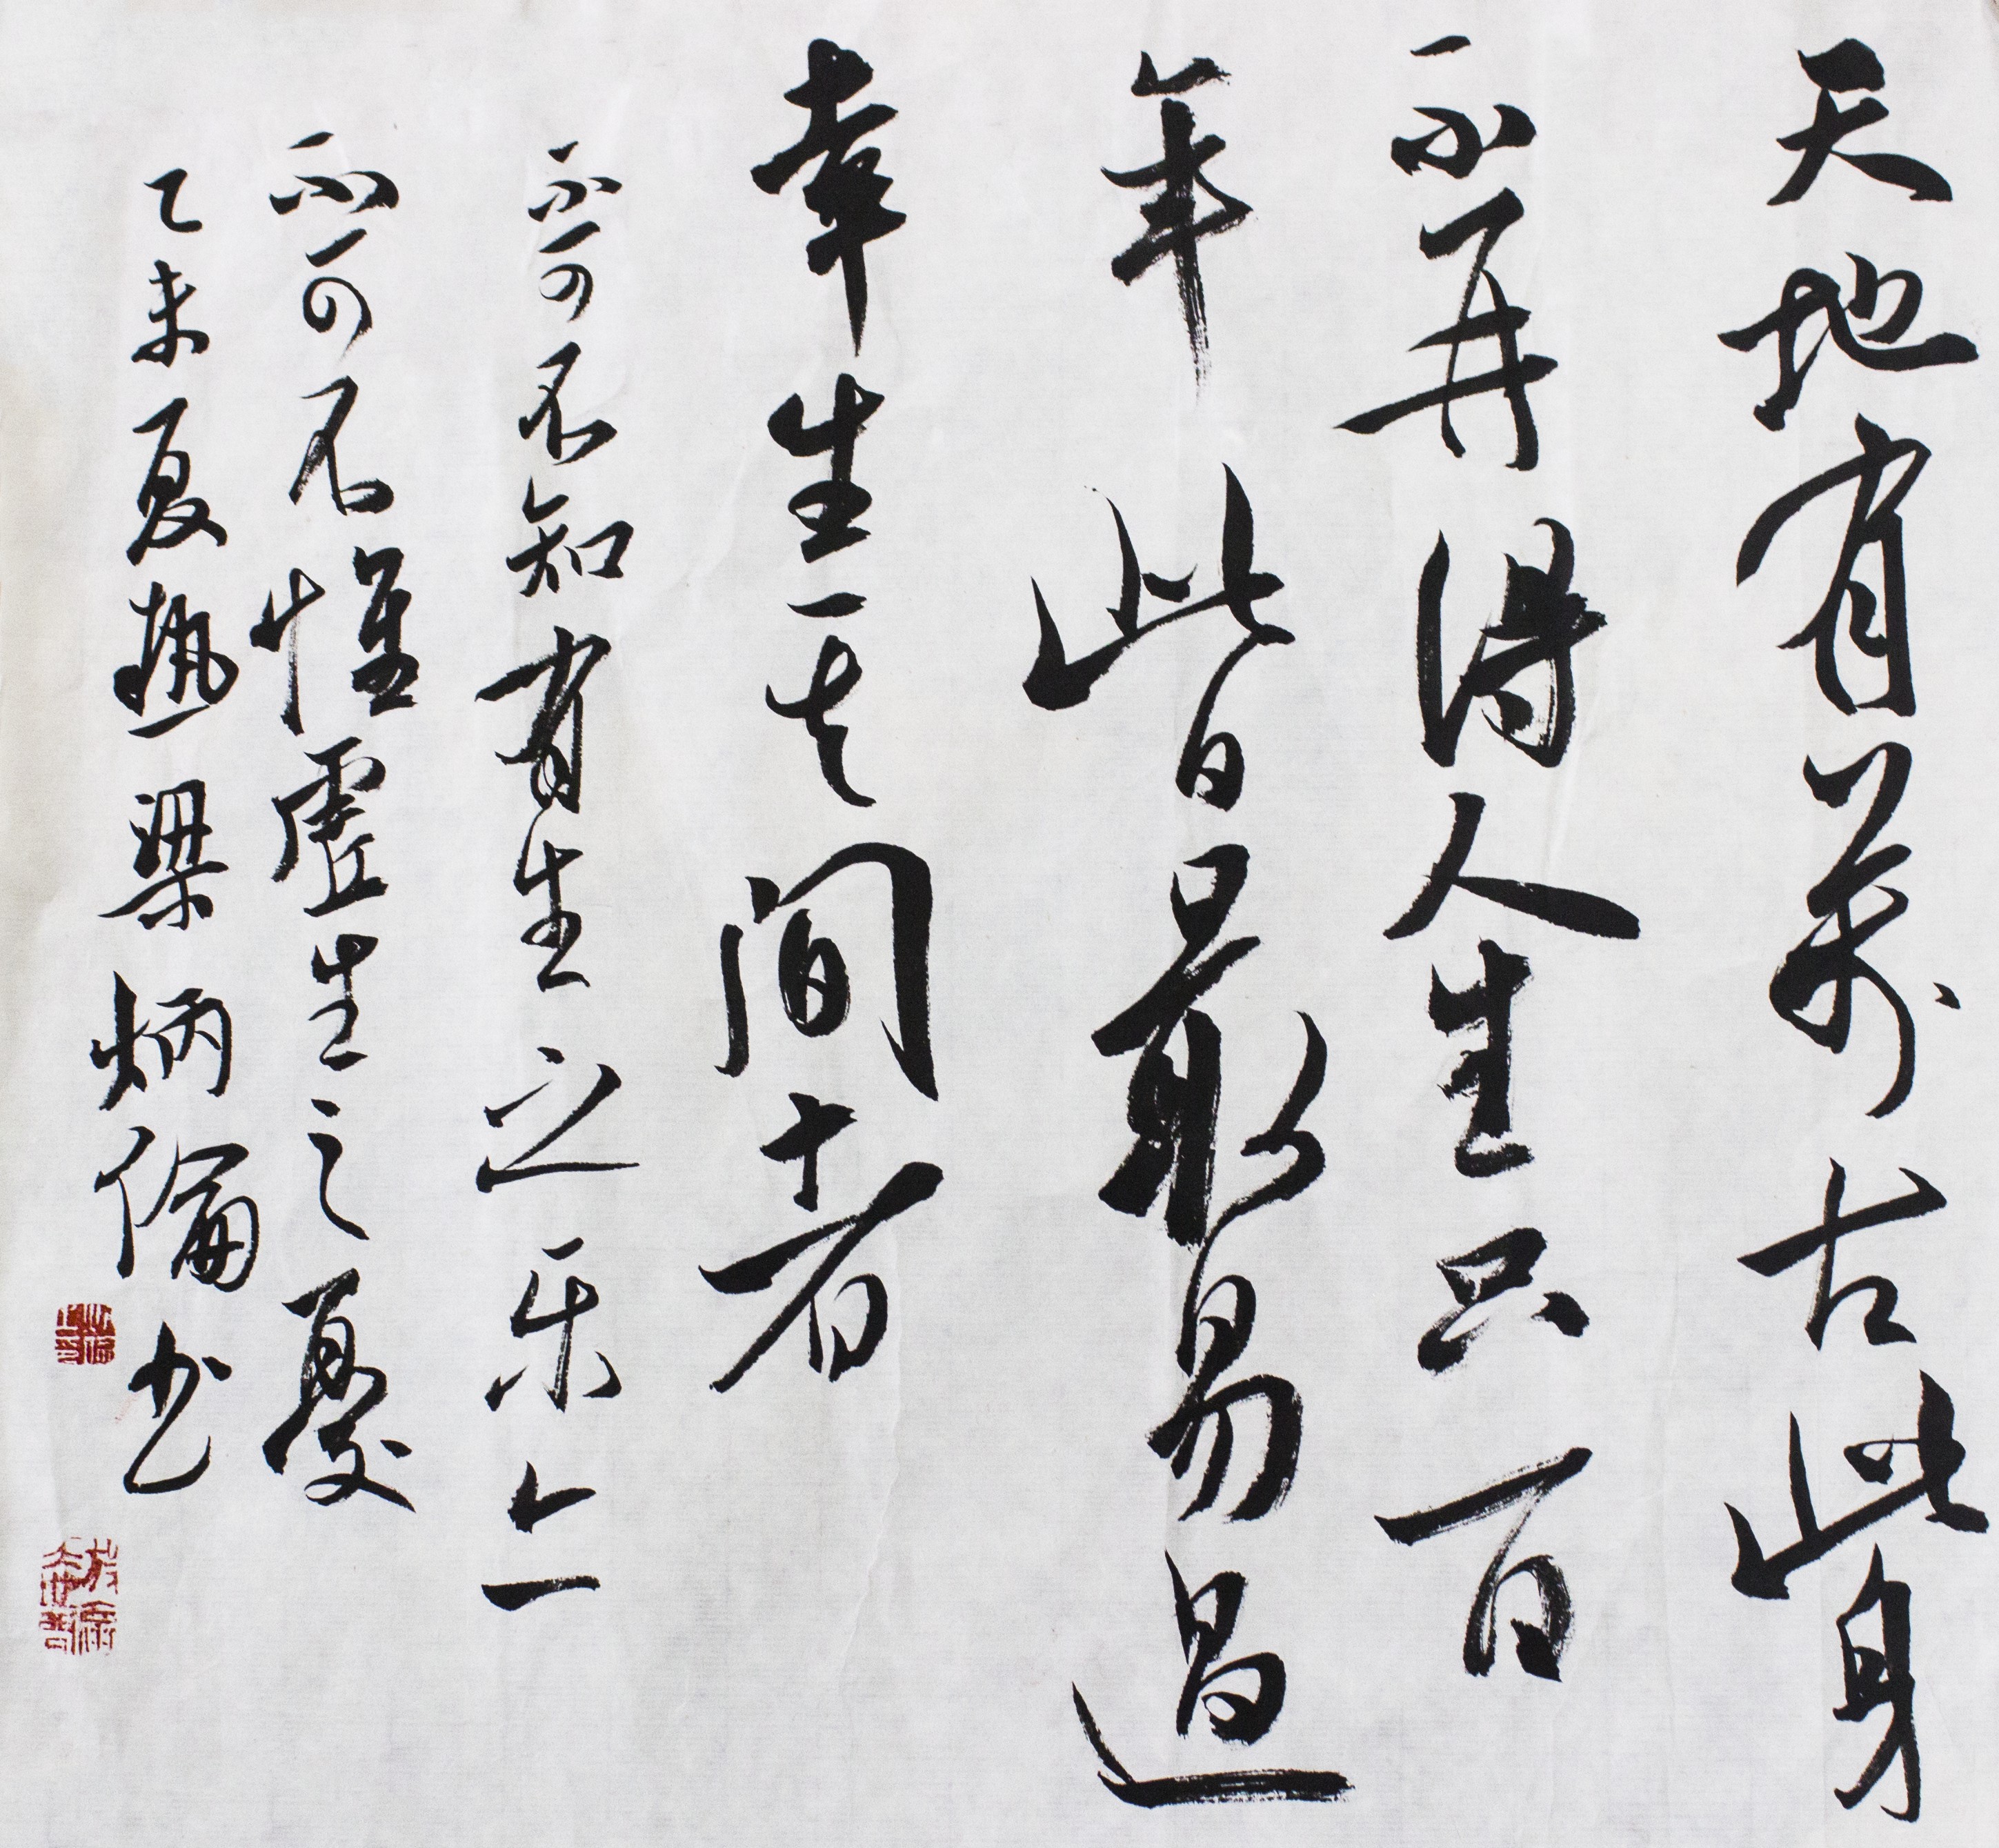 天地有萬古此身
不再得人生只百
年此日最易過
幸生其間者
不可不知有生之乐亦
不可不懷虛生之憂
乙未夏熱梁炳倫书